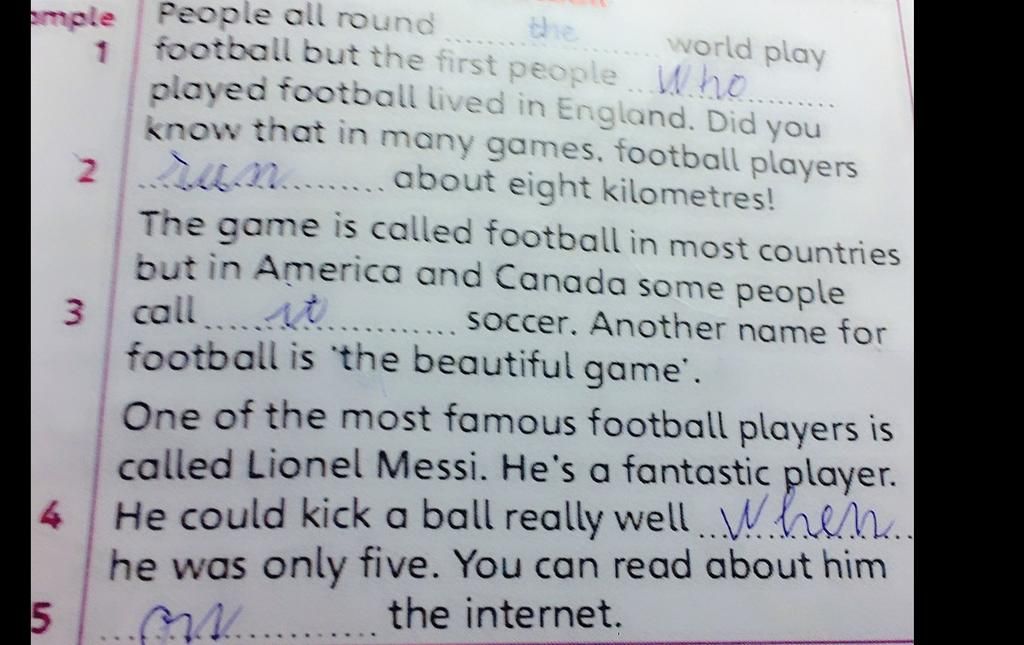 People all round the world play
1 football but the first people who
played football lived in England. Did you
know that in many games, football players
2 run about eight kilometres!
The game is called football in most countries
but in America and Canada some people
3 call it soccer. Another name for
football is 'the beautiful game'.
One of the most famous football players is
called Lionel Messi. He's a fantastic player.
4 He could kick a ball really well when
he was only five. You can read about him
5 on the internet.